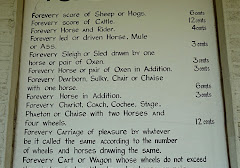 Forevery score of Sheep or Hogs. 6 cents
Forevery score of Cattle. 12 cents
Forevery Horse and Rider. 4 cents
Forevery led or driven Horse, Mule
or Ass. 3 cents
Forevery Sleigh or Sled drawn by one
horse or pair of Oxen. 3 cents
Forevery Horse or pair of Oxen in Addition. 3 cents
Forevery Dearborn, Sulky, Chair or Chaise
with one horse. 6 cents
Forevery Horse in Addition. 3 cents
Forevery Chariot, Coach, Cochee, Stage,
Phaeton or Chaise with two Horses and
four wheels. 12 cents
Forevery Carriage of pleasure by whatever
be it called the same according to the number
of wheels and horses drawing the same.
Forevery Cart or Wagon whose wheels do not exceed